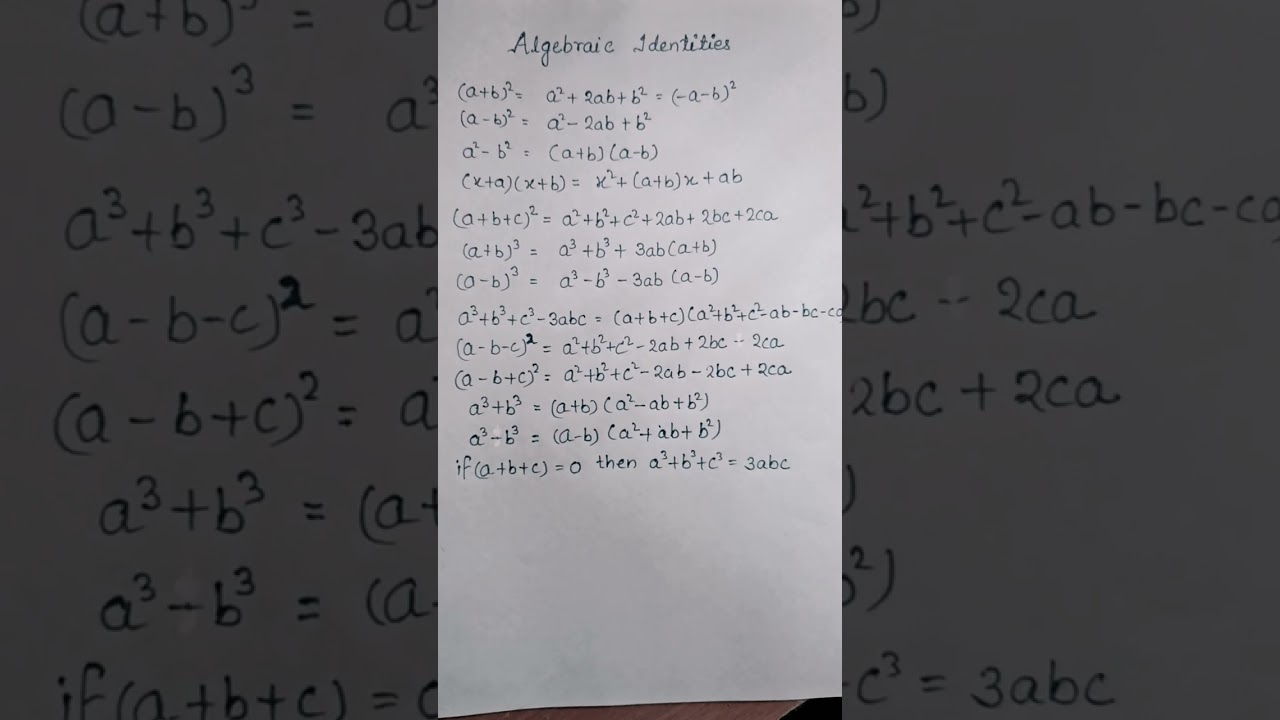 Algebraic Identities
(a+b)² = a² + 2ab + b² = (-a-b)²
(a-b)² = a² - 2ab + b²
a² - b² = (a+b) (a-b)
(x+a) (x+b) = x² + (a+b)x + ab
(a+b+c)² = a² + b² + c² + 2ab + 2bc + 2ca
(a+b)³ = a³ + b³ + 3ab(a+b)
(a-b)³ = a³ - b³ - 3ab (a-b)
a³+b³+c³-3abc = (a+b+c) (a²+b²+c²-ab-bc-ca
(a-b-c)² = a²+b²+c²-2ab+2bc - 2ca
(a-b+c)² = a²+b²+c²-2ab-2bc+2ca
a³+b³ = (a+b) (a²-ab+b²)
a³-b³ = (a-b) (a²+ab+b²)
if (a+b+c) = 0 then a³+b³+c³ = 3abc